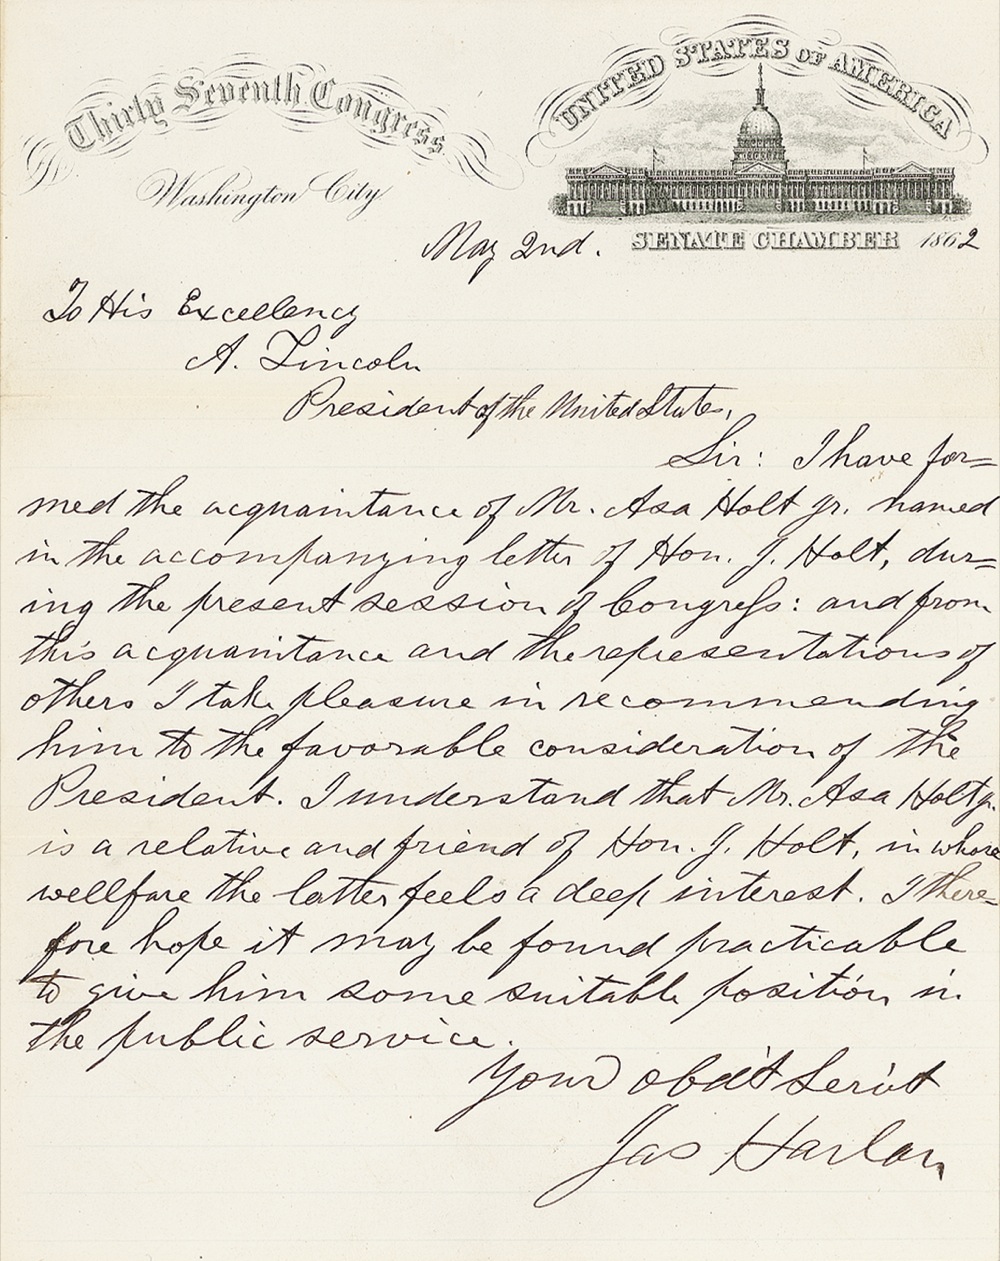 Thirty Seventh Congress
Washington City
UNITED STATES OF AMERICA
SENATE CHAMBER 1862
May 2nd.
To His Excellency
A. Lincoln
President of the United States,
Sir: I have for=
med the acquaintance of Mr. Asa Holt Jr. named
in the accompanying letter of Hon. J. Holt, dur=
ing the present session of Congress: and from
this acquaintance and the representations of
others I take pleasure in recommending
him to the favorable consideration of the
President. I understand that Mr. Asa Holt Jr.
is a relative and friend of Hon. J. Holt, in whose
wellfare the latter feels a deep interest. I there=
fore hope it may be found practicable
to give him some suitable position in
the public service.
Your obdt Servt
Jas Harlan